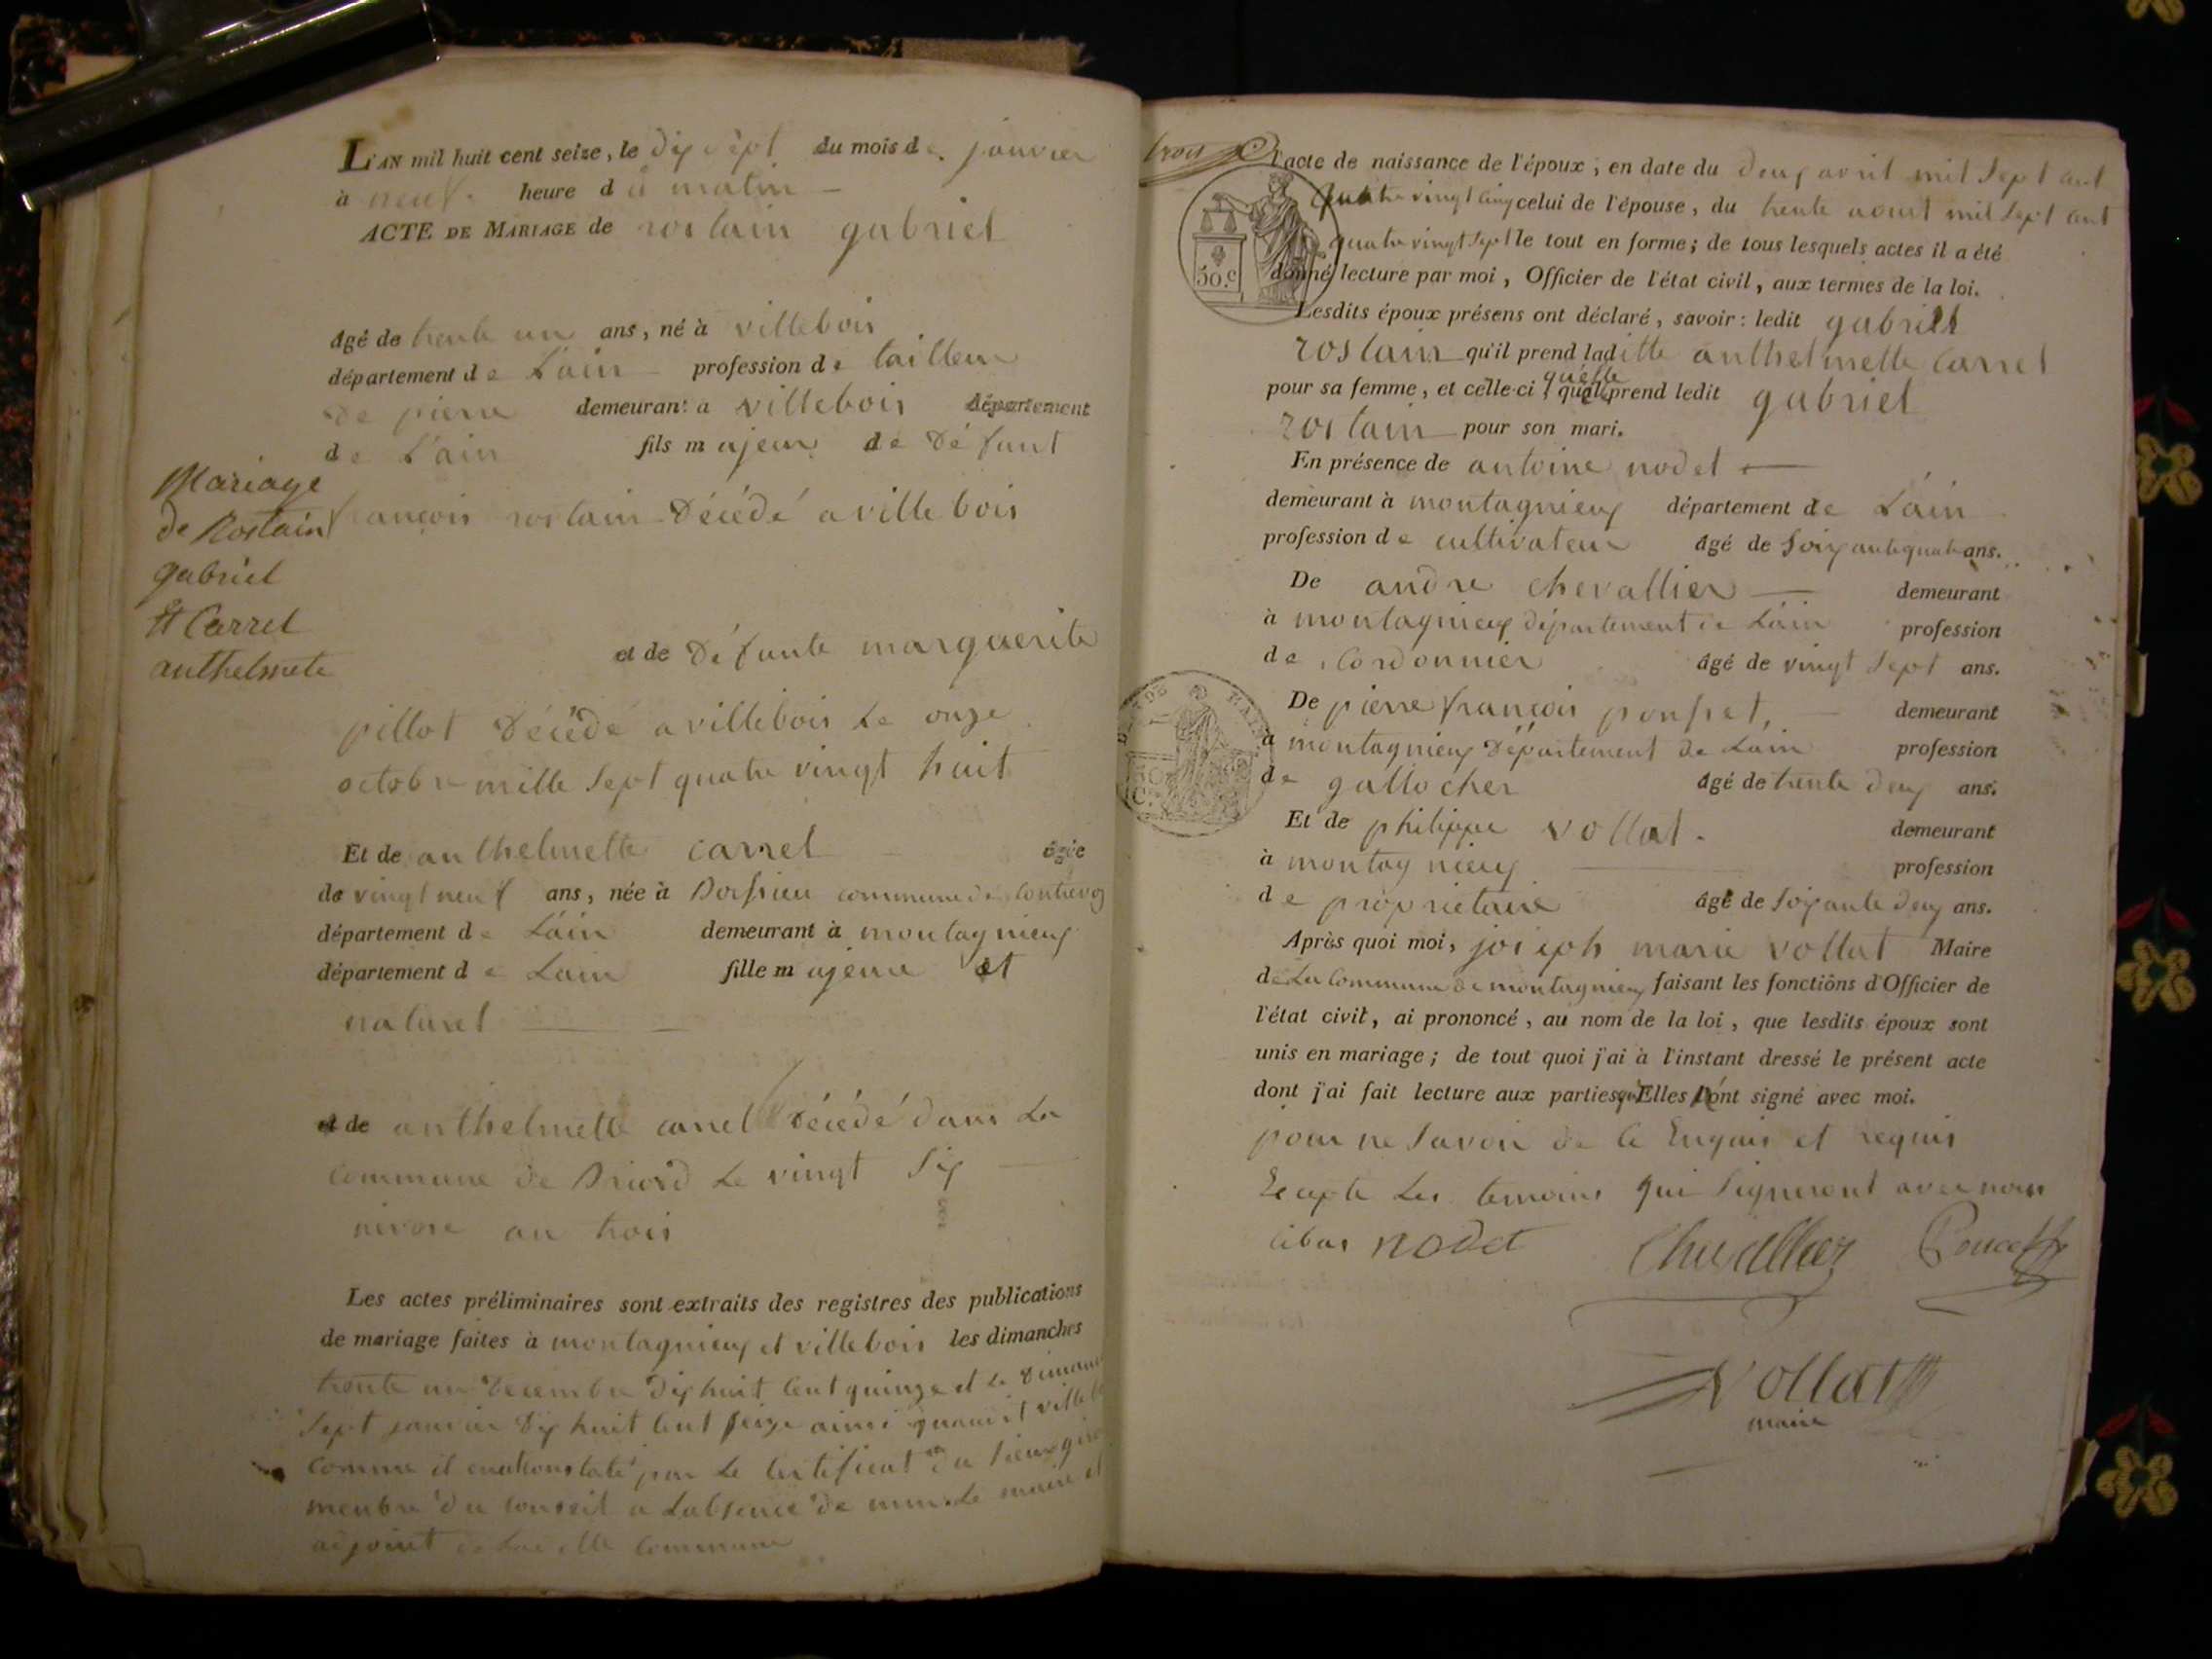 L'AN mil huit cent seize, le dix sept du mois de janvier
à neuf heure du matin
ACTE DE MARIAGE de rostain gabriel
âgé de trente un ans, né à villebois
département de Lain profession de tailleur
de pierre demeurant à villebois département
de Lain fils majeur de défunt
Mariage
de Rostain
gabriel
Et Carrel
anthelmete
françois rostain décédé a villebois
et de défunte marguerite
pillot décédé a villebois le onze
octobre mille sept quatre vingt huit
Et de anthelmette carrel âgée
de vingt neuf ans, née à Dorsieu commune de Contrevoz
département de Lain demeurant à montagnieux
département de Lain fille majeure et
naturel
et de anthelmette carrel décédé dans la
commune de Briord le vingt six
nivose an trois
Les actes préliminaires sont extraits des registres des publications
de mariage faites à montagnieux et villebois les dimanches
trente un decembre dix huit cent quinze et le dimanc
sept janvier dix huit cent seize ainsi quaudit villeb
comme il constaté par le certificat du sieur
menbre du conseil a labsence de le maire et
adjoint commune
trois
l'acte de naissance de l'époux, en date du deux avril mil sept cent
quatre vingt cinq celui de l'épouse, du trente aout mil sept cent
quatre vingt sept le tout en forme; de tous lesquels actes il a été
donné lecture par moi, Officier de l'état civil, aux termes de la loi.
50.c
Lesdits époux présens ont déclaré, savoir: ledit gabriel
rostain qu'il prend laditte anthelmette Carrel
pour sa femme, et celle-ci quelle prend ledit gabriel
rostain pour son mari.
En présence de antoine nodet
demeurant à montagnieux département de Lain
profession de cultivateur âgé de soixante quatre ans.
De andre chevallier demeurant
à montagnieux département de Lain profession
de cordonnier âgé de vingt sept ans.
De pierre françois ponsset, demeurant
a montagnieux département de Lain profession
de gallocher âgé de trente deux ans.
Et de philippe vollat. demeurant
à montagnieux profession
de propriétaire âgé de soixante deux ans.
Après quoi moi, joseph marie vollat Maire
de La Commune de montagnieux faisant les fonctions d'Officier de
l'état civil, ai prononcé, au nom de la loi, que lesdits époux sont
unis en mariage; de tout quoi j'ai à l'instant dressé le présent acte
dont j'ai fait lecture aux parties qu'Elles n'ont signé avec moi.
pour ne savoir de ce Enquis et requis
Excepte les temoins qui signeront avec nous
cibas nodet Chevallier Poncet
Vollat
maire